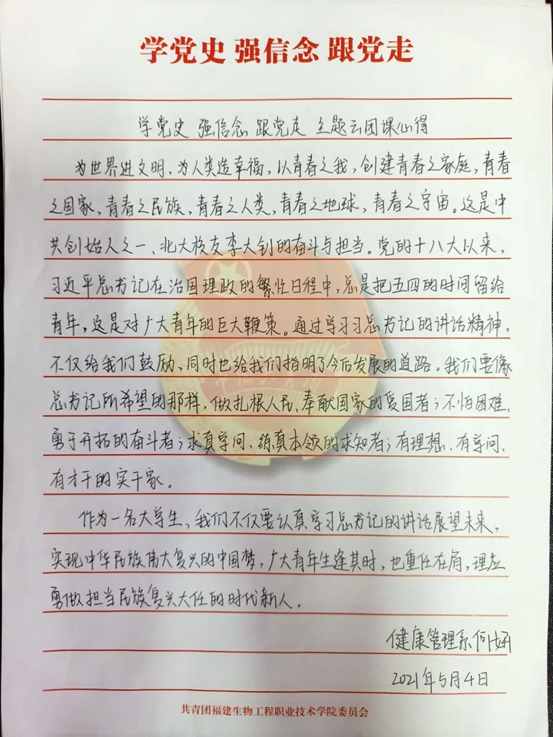 学党史 强信念 跟党走
学党史 强信念 跟党走 主题云团课心得
为世界进文明，为人类造幸福，以青春之我，创建青春之家庭，青春
之国家，青春之民族，青春之人类，青春之地球，青春之宇宙。这是中
共创始人之一、北大校友李大钊的奋斗与担当。党的十八大以来，
习近平总书记在治国理政的繁忙日程中，总是把五四的时间留给
青年，这是对广大青年的巨大鞭策。通过学习习总书记的讲话精神，
不仅给我们鼓励，同时也给我们指明了今后发展的道路。我们要像
总书记所希望的那样，做扎根人民、奉献国家的爱国者；不怕困难，
勇于开拓的奋斗者；求真学问、练真本领的求知者；有理想、有学问、
有才干的实干家。
作为一名大学生，我们不仅要认真学习总书记的讲话展望未来，
实现中华民族伟大复兴的中国梦，广大青年生逢其时，也重任在肩，理应
勇做担当民族复兴大任的时代新人。
健康管理系 何
2021年5月4日
共青团福建生物工程职业技术学院委员会